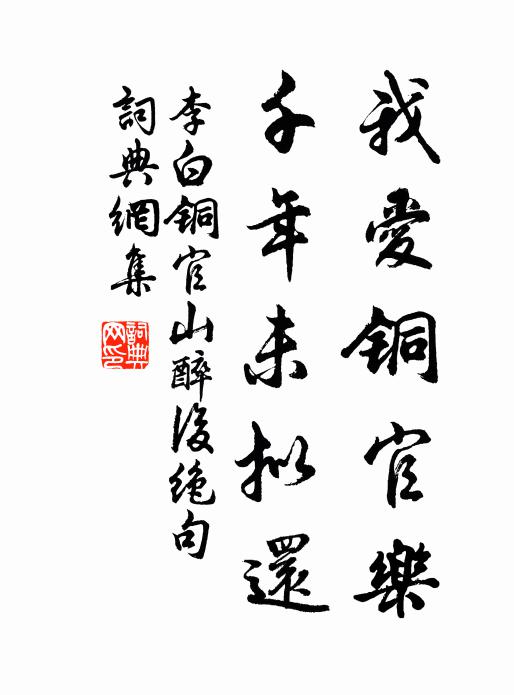 我愛铜官樂
千年未拟還
李白铜官山醉後绝句
詞典網集
詞典网印